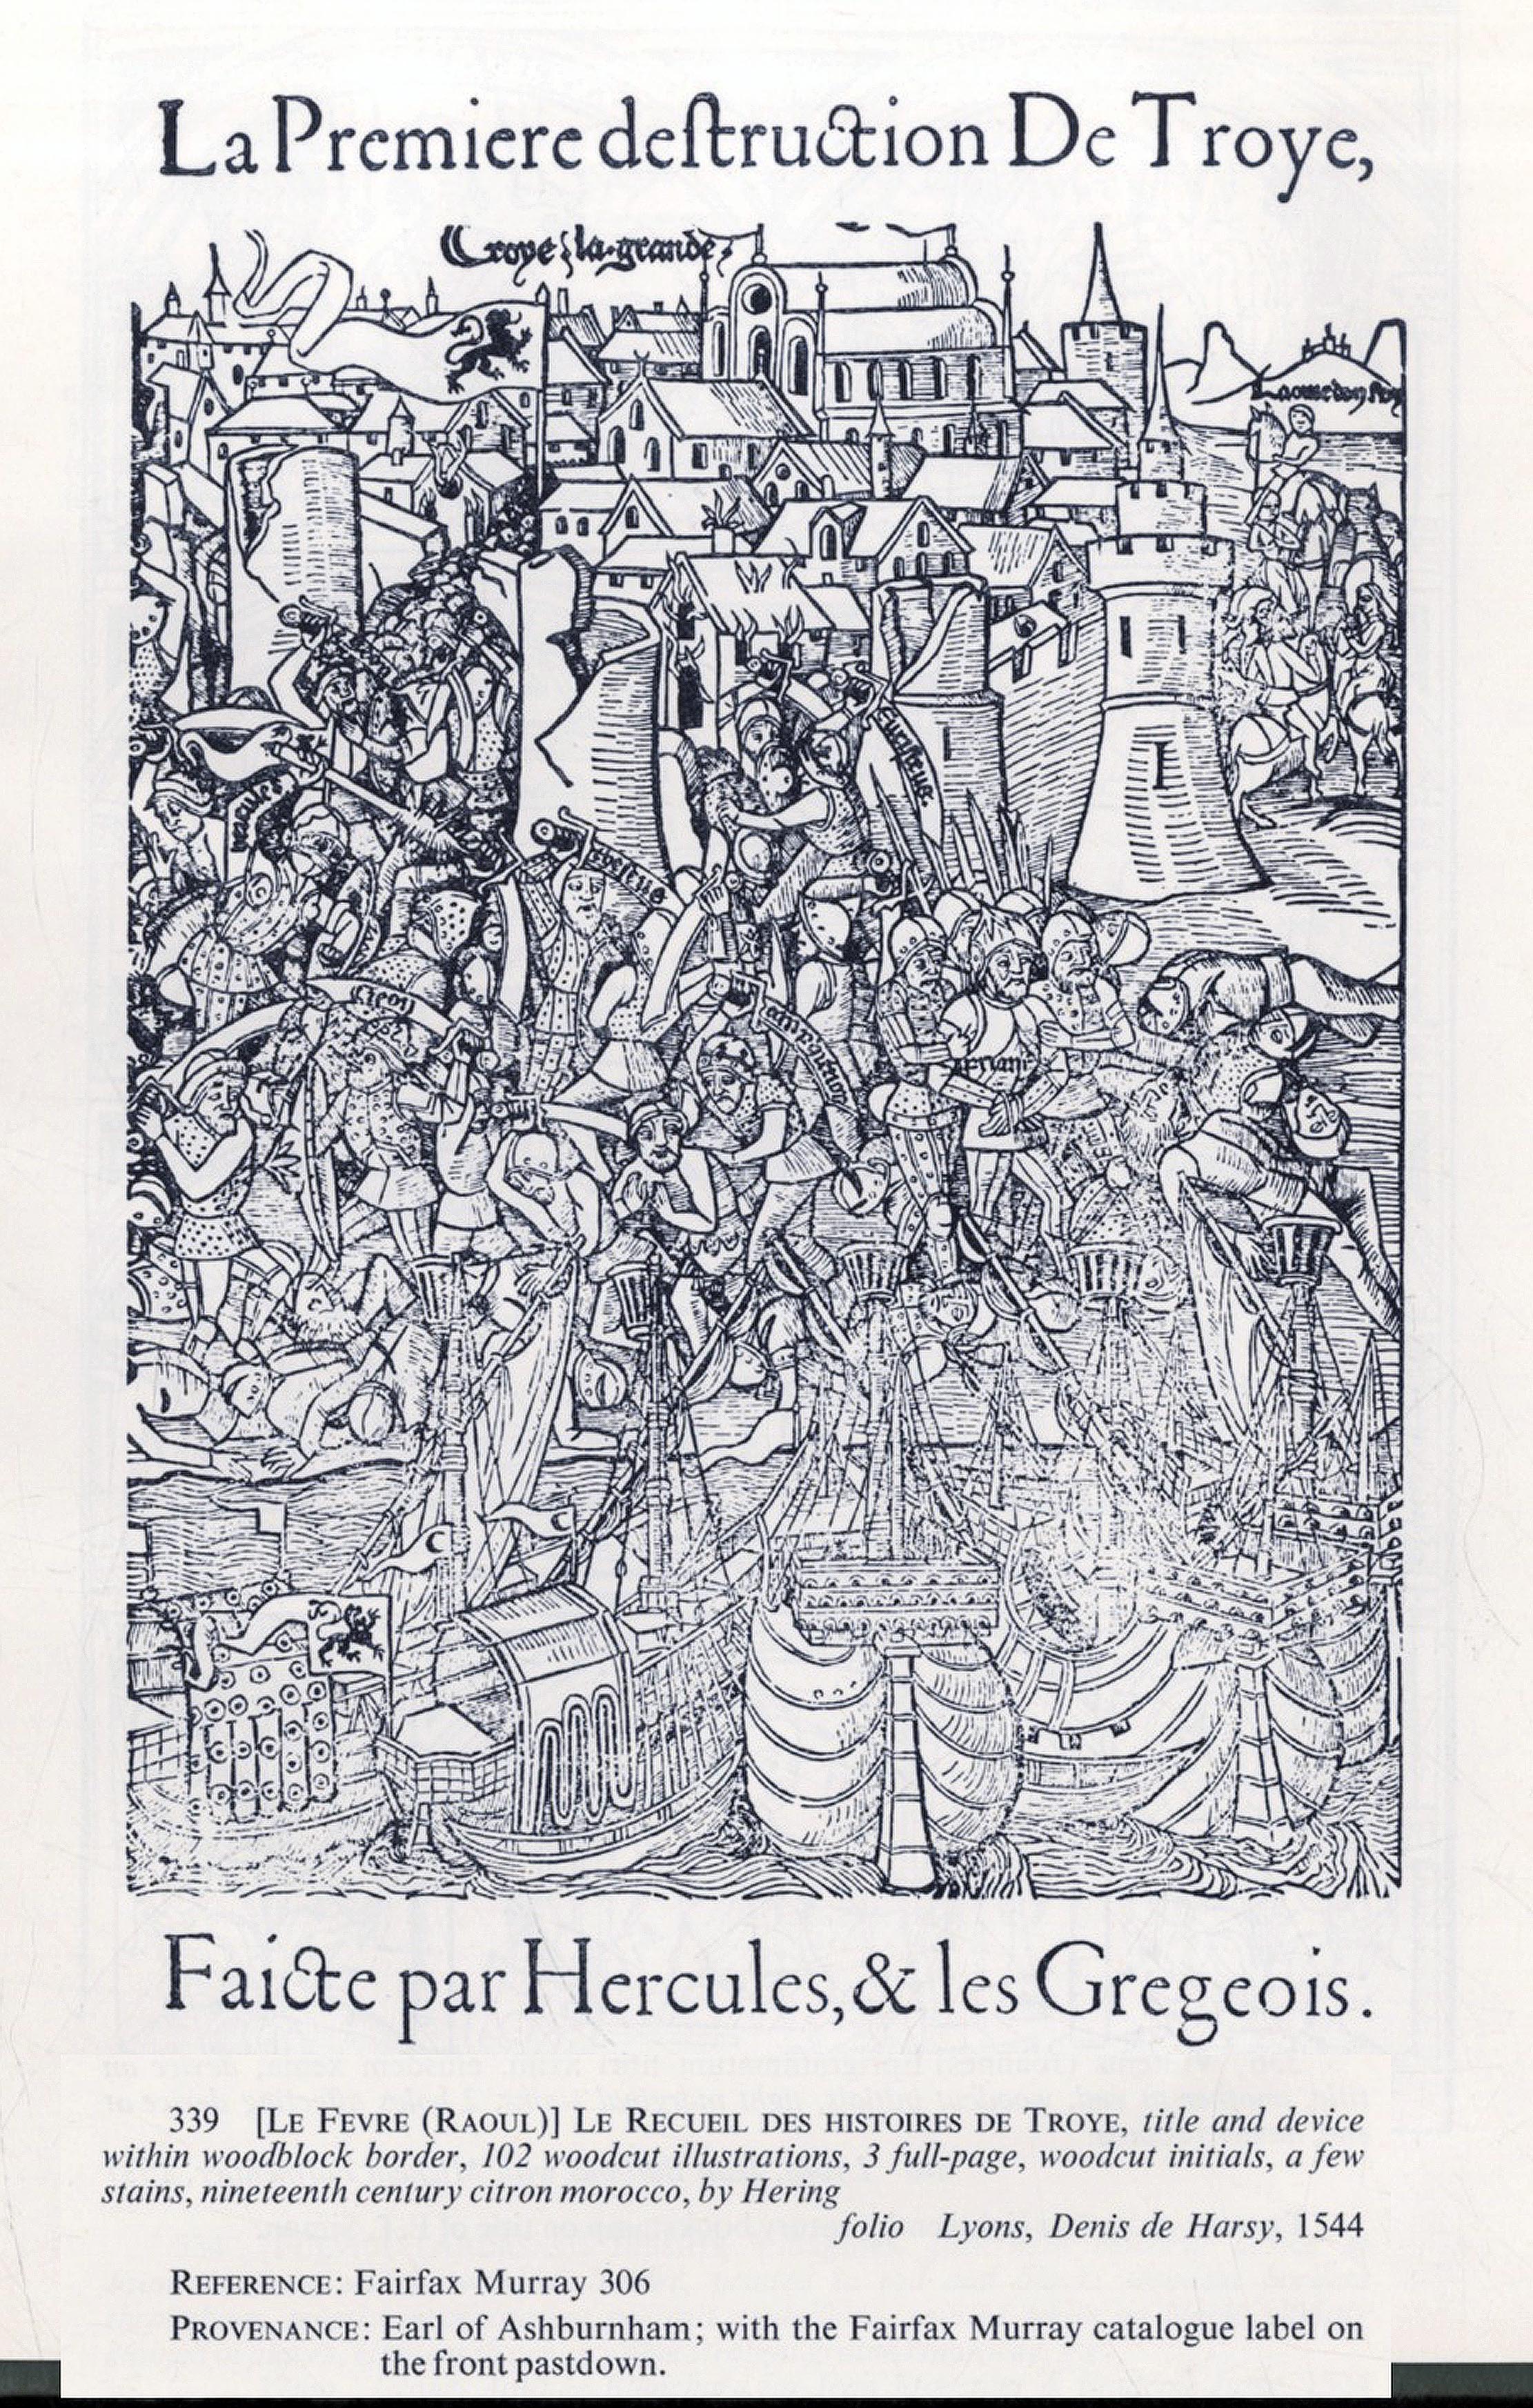 La Premiere deſtruction De Troye,
Troye la grande
Laomedon Roy
Euristeus
hercules
Creon
Priam
Faicte par Hercules, & les Gregeois.
339 [LE FEVRE (RAOUL)] LE RECUEIL DES HISTOIRES DE TROYE, title and device
within woodblock border, 102 woodcut illustrations, 3 full-page, woodcut initials, a few
stains, nineteenth century citron morocco, by Hering
folio Lyons, Denis de Harsy, 1544
REFERENCE: Fairfax Murray 306
PROVENANCE: Earl of Ashburnham; with the Fairfax Murray catalogue label on
the front pastdown.